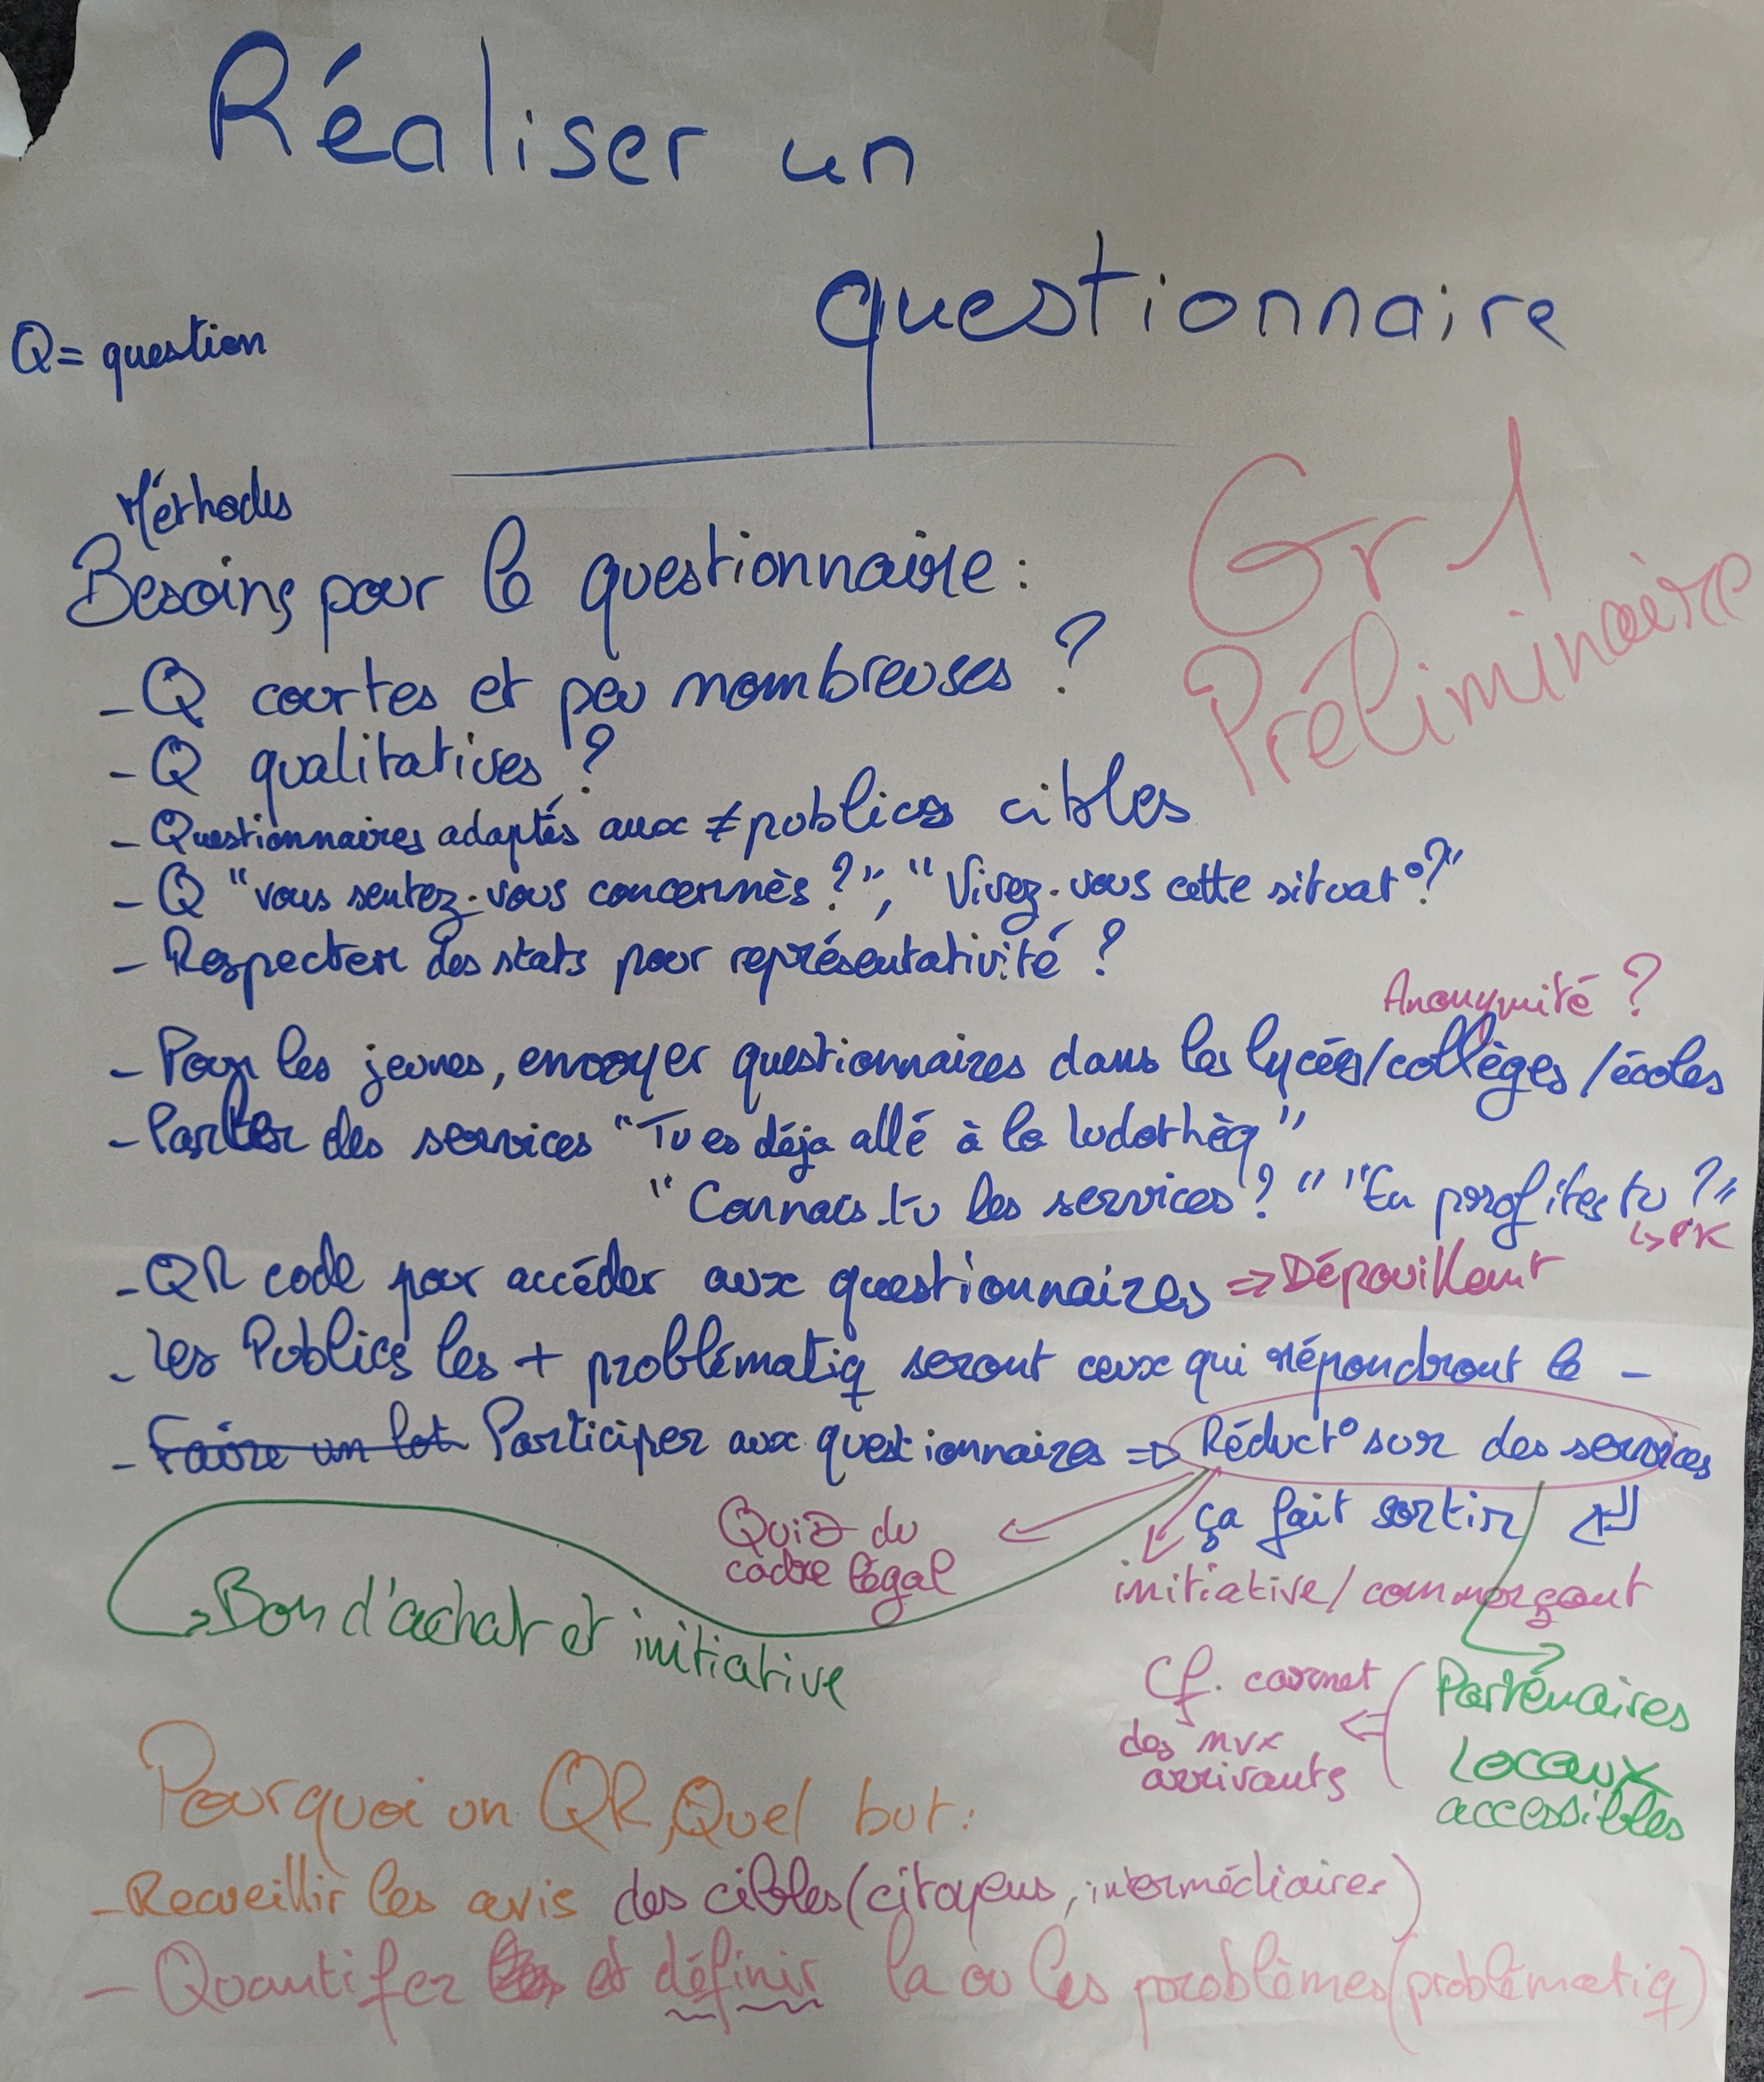 Réaliser un
questionnaire
Q = question
Gr 1
Préliminaire
Méthodes
Besoins pour le questionnaire :
- Q courtes et peu nombreuses ?
- Q qualitatives ?
- Questionnaires adaptés aux ≠ publics cibles
- Q "vous sentez-vous concernés ?", "Vivez-vous cette situat° ?"
- Respecter des stats pour représentativité ?
Anonymité ?
- Pour les jeunes, envoyer questionnaires dans les lycées/collèges/écoles
- Parler des services "Tu es déja allé à la ludothèq"
"Connais-tu les services ?" "En profites tu ?"
↳ PK
- QR code pour accéder aux questionnaires => Dépouillent
- Les Publics les + problématiq seront ceux qui répondront le -
- Faire un lot Participer aux questionnaires => Réduct° sur des services
ça fait sortir
Quid du
cadre légal
initiative/commerçant
→ Bon d'achat et initiative
Cf. carnet
des nvx
arrivants
Partenaires
Locaux
accessibles
Pourquoi un QR, Quel but :
- Recueillir les avis des cibles (citoyens, intermédiaires)
- Quantifer et définir la ou les problèmes (problématiq)